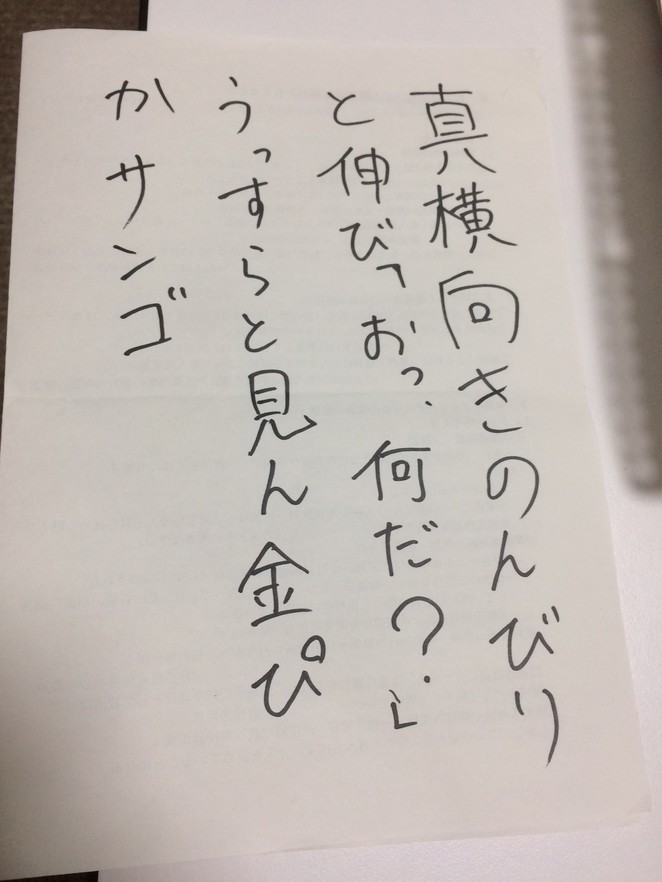 真横向きのんびり
と伸び「おっ、何だ？」
うっすらと見ん金ぴ
かサンゴ